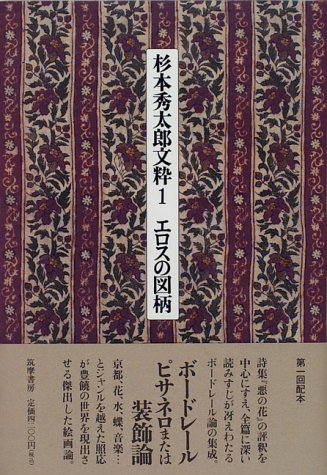 杉本秀太郎文粋1 エロスの図柄
第一回配本
詩集『悪の花』の評釈を
中心にすえ、全篇に深い
読みすじが冴えわたる
ボードレール論の集成。
ボードレール
ピサネロまたは
装飾論
京都、花、水、蝶、音楽…
とジャンルを越えた照応
が豊饒の世界を現出さ
せる傑出した絵画論。
筑摩書房 定価四一〇〇円(税込)